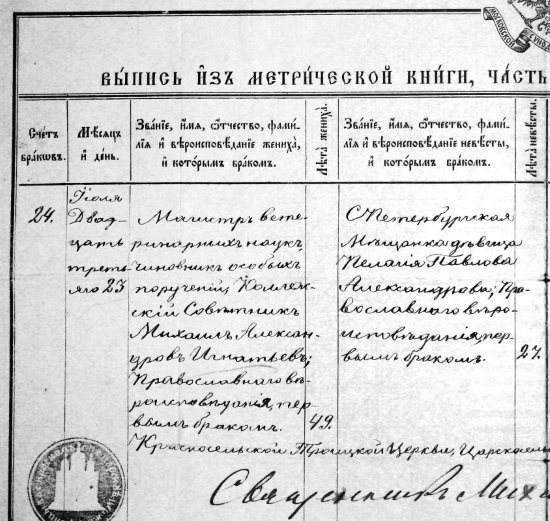 МОСКОВСКОЙ
ВЫ́ПИСЬ И҆ЗЪ МЕТРИ́ЧЕСКОЙ КНИ́ГИ, ЧА́СТЬ
Сче́тъ бра́кѡвъ.
Мѣ́сѧцъ и҆ де́нь.
Зва́нїе, и҆́мѧ, ѻ҆́тчество, фами́-
лїѧ и҆ вѣроисповѣ́данїе жениха̀,
и҆ кото́рымъ бра́комъ.
Лѣ́та жениха̀.
Зва́нїе, и҆́мѧ, ѻ҆́тчество, фами́-
лїѧ и҆ вѣроисповѣ́данїе невѣ́сты,
и҆ кото́рымъ бра́комъ.
Лѣ́та невѣ́сты.
24.
Іюля
Двад
цать
треть
яго 23
Магистръ вете-
ринарныхъ наукъ,
чиновникъ особыхъ
порученій, Коллеж-
скій Совѣтникъ
Михаилъ Алексан-
дровъ Игнатьевъ;
Православнаго вѣ-
роисповѣданія, пер-
вымъ бракомъ.
49.
С.Петербургская
Мѣщанка дѣвица
Пелагія Павлова
Александрова; Пра-
вославнаго вѣро-
исповѣданія, пер-
вымъ бракомъ.
27.
Красносельской Троицкой Церкви, Царскосель
Священникъ Миха